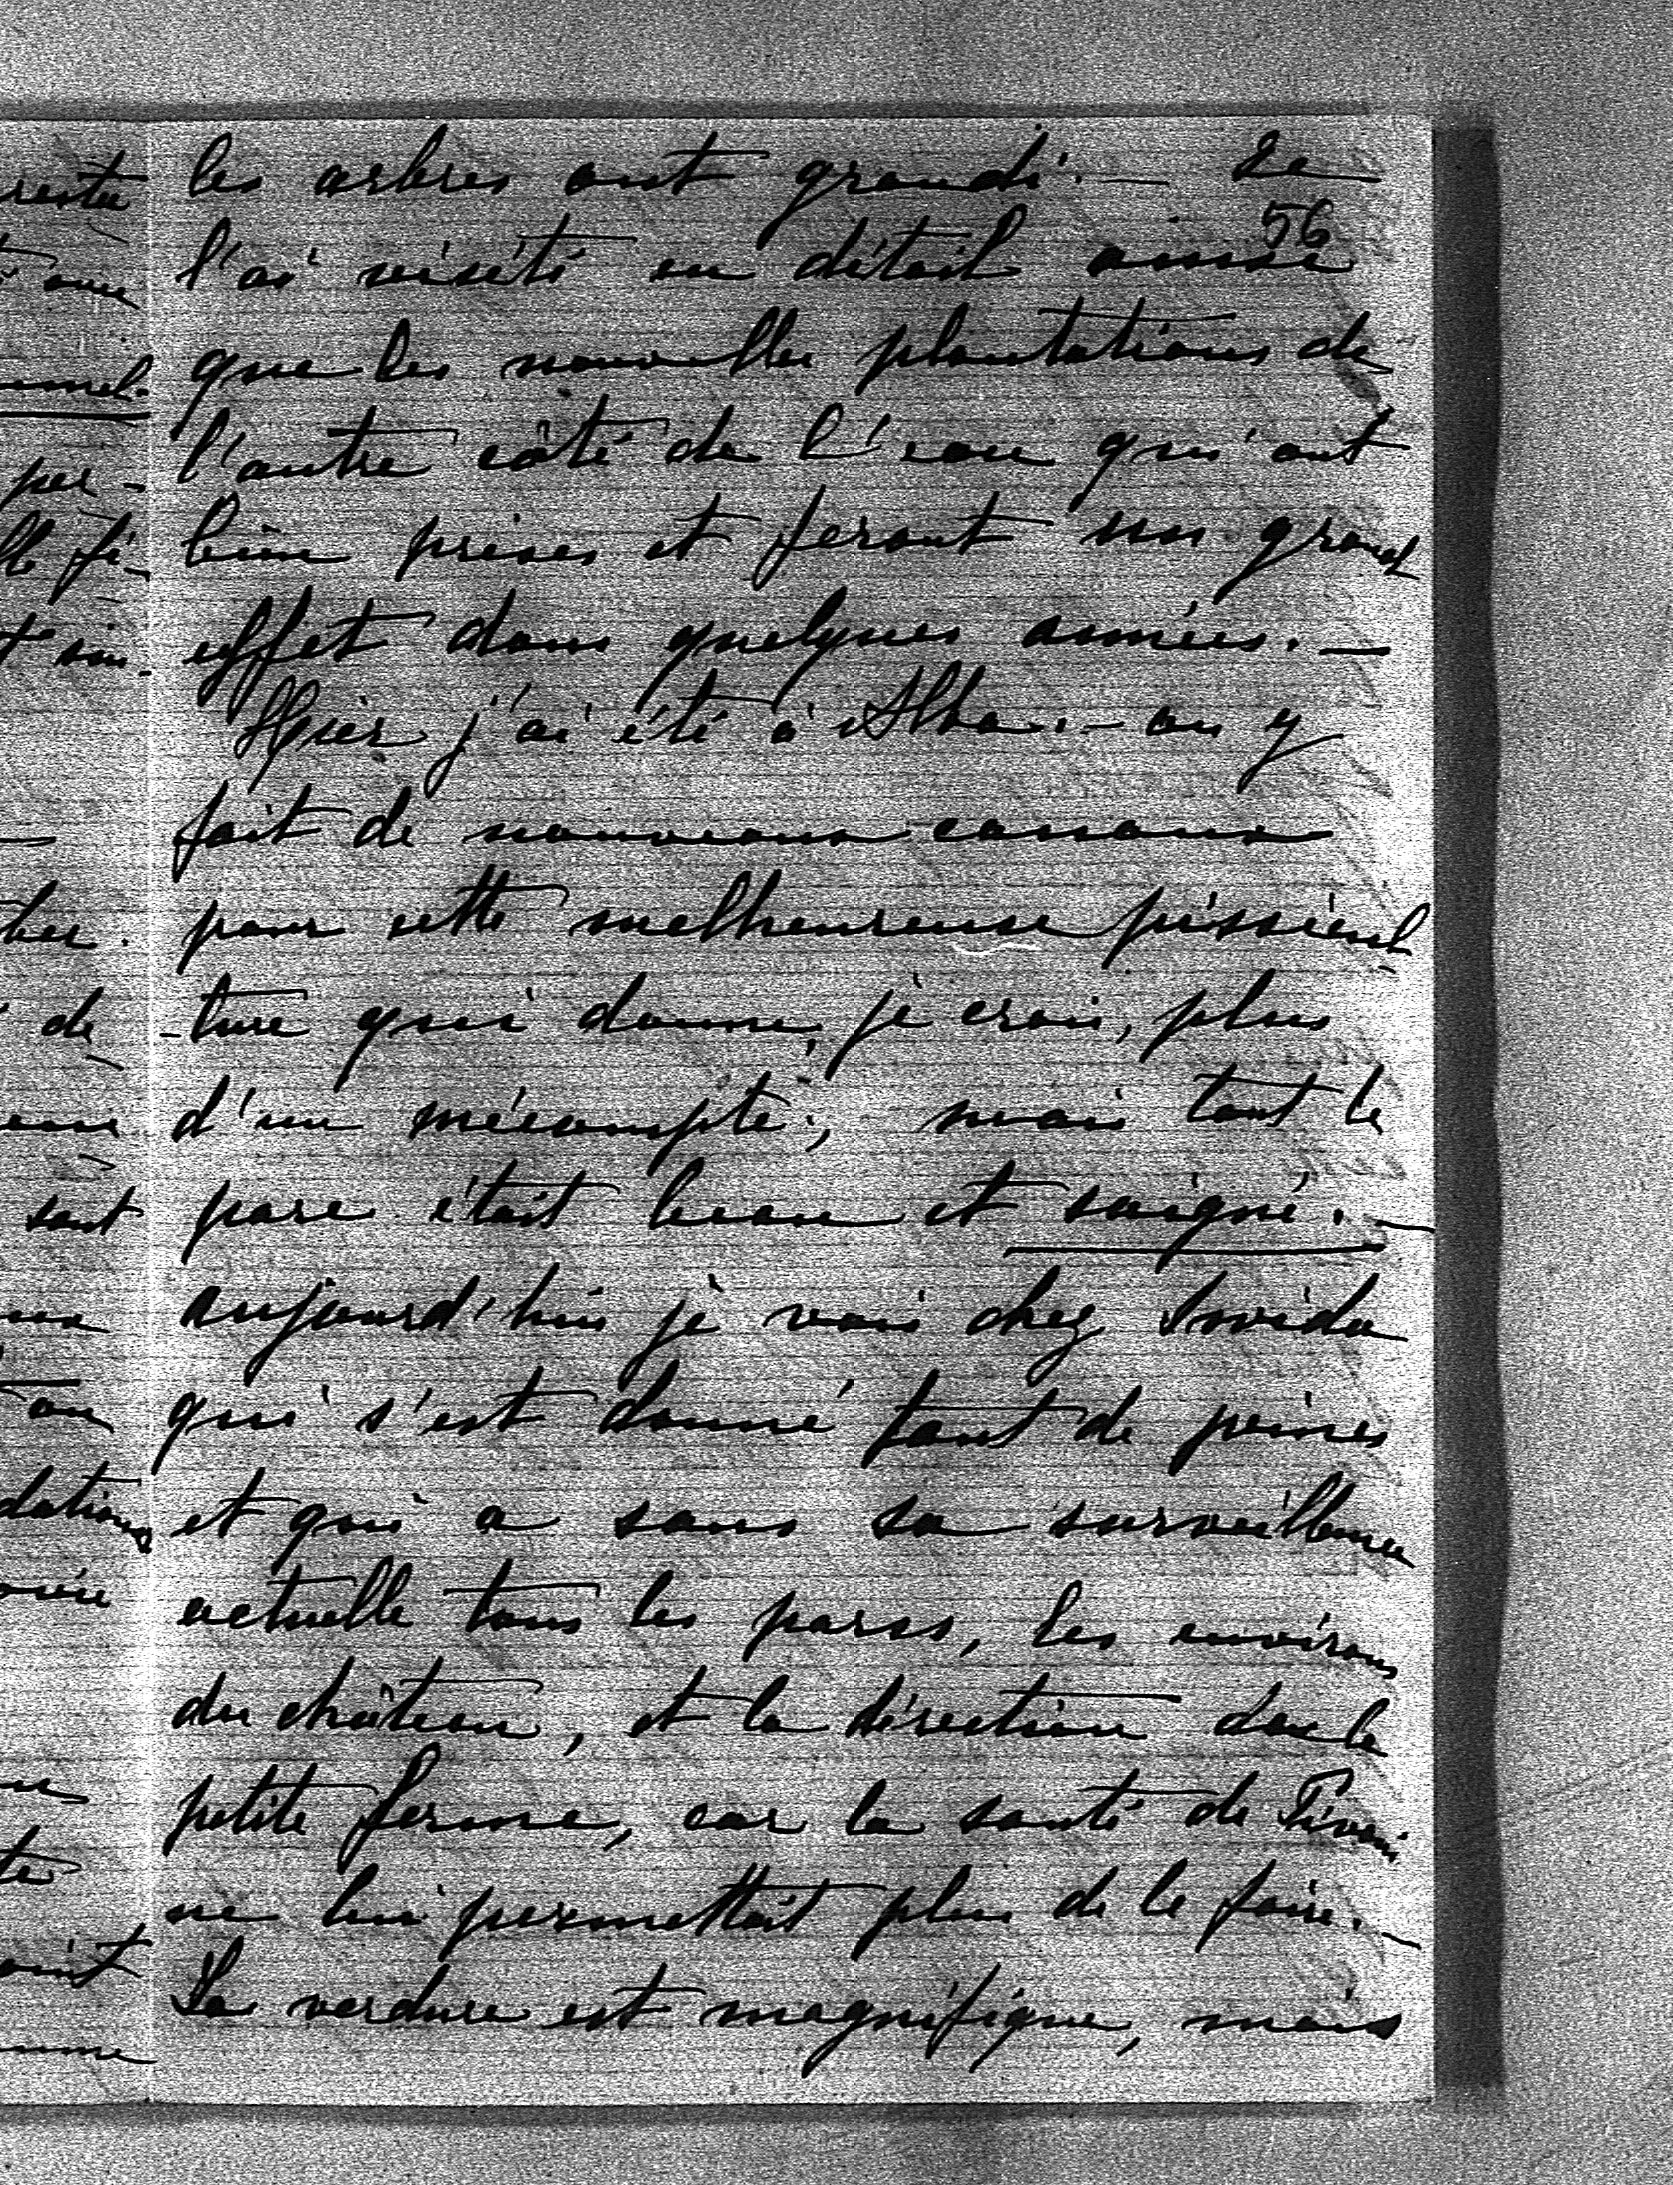 les arbres ont grandi. — Je
56
l'ai visité en détail ainsi
que les nouvelles plantations de
l'autre côté de l'eau qui ont
bien prises et feront un grand
effet dans quelques années. —
Hier j'ai été à Alba. — on y
fait de nouveaux canaux
pour cette malheureuse piscicul-
-ture qui donne, je crois, plus
d'un mécompte; mais tout le
parc était beau et soigné. —
aujourd'hui je vais chez
qui s'est donné tant de peines
et qui a sous sa surveillance
actuelle tous les parcs, les environs
du château, et la direction de la
petite ferme, car la santé de
ne lui permettait plus de le faire. —
La verdure est magnifique, mais